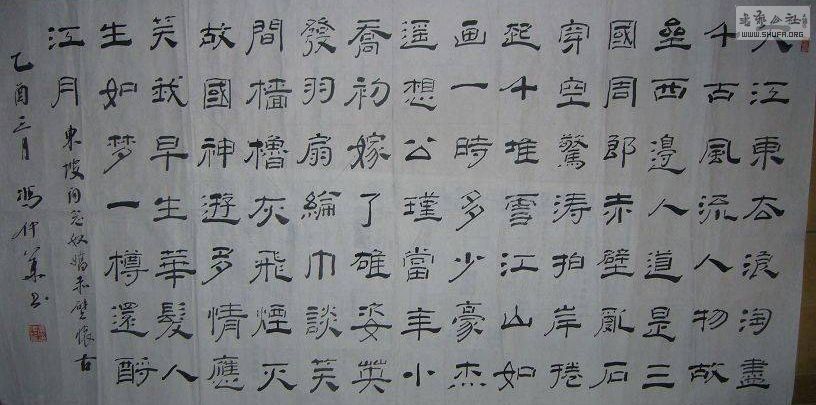 大江東去浪淘盡
千古風流人物故
壘西邊人道是三
國周郎赤壁亂石
穿空驚濤拍岸捲
起千堆雪江山如
画一時多少豪杰
遥想公瑾當年小
喬初嫁了雄姿英
發羽扇綸巾談笑
間檣櫓灰飛煙灭
故國神遊多情應
笑我早生華髮人
生如梦一樽還酹
江月
東坡詞念奴嬌赤壁懷古
乙酉三月 馮
WWW.SHUFA.ORG